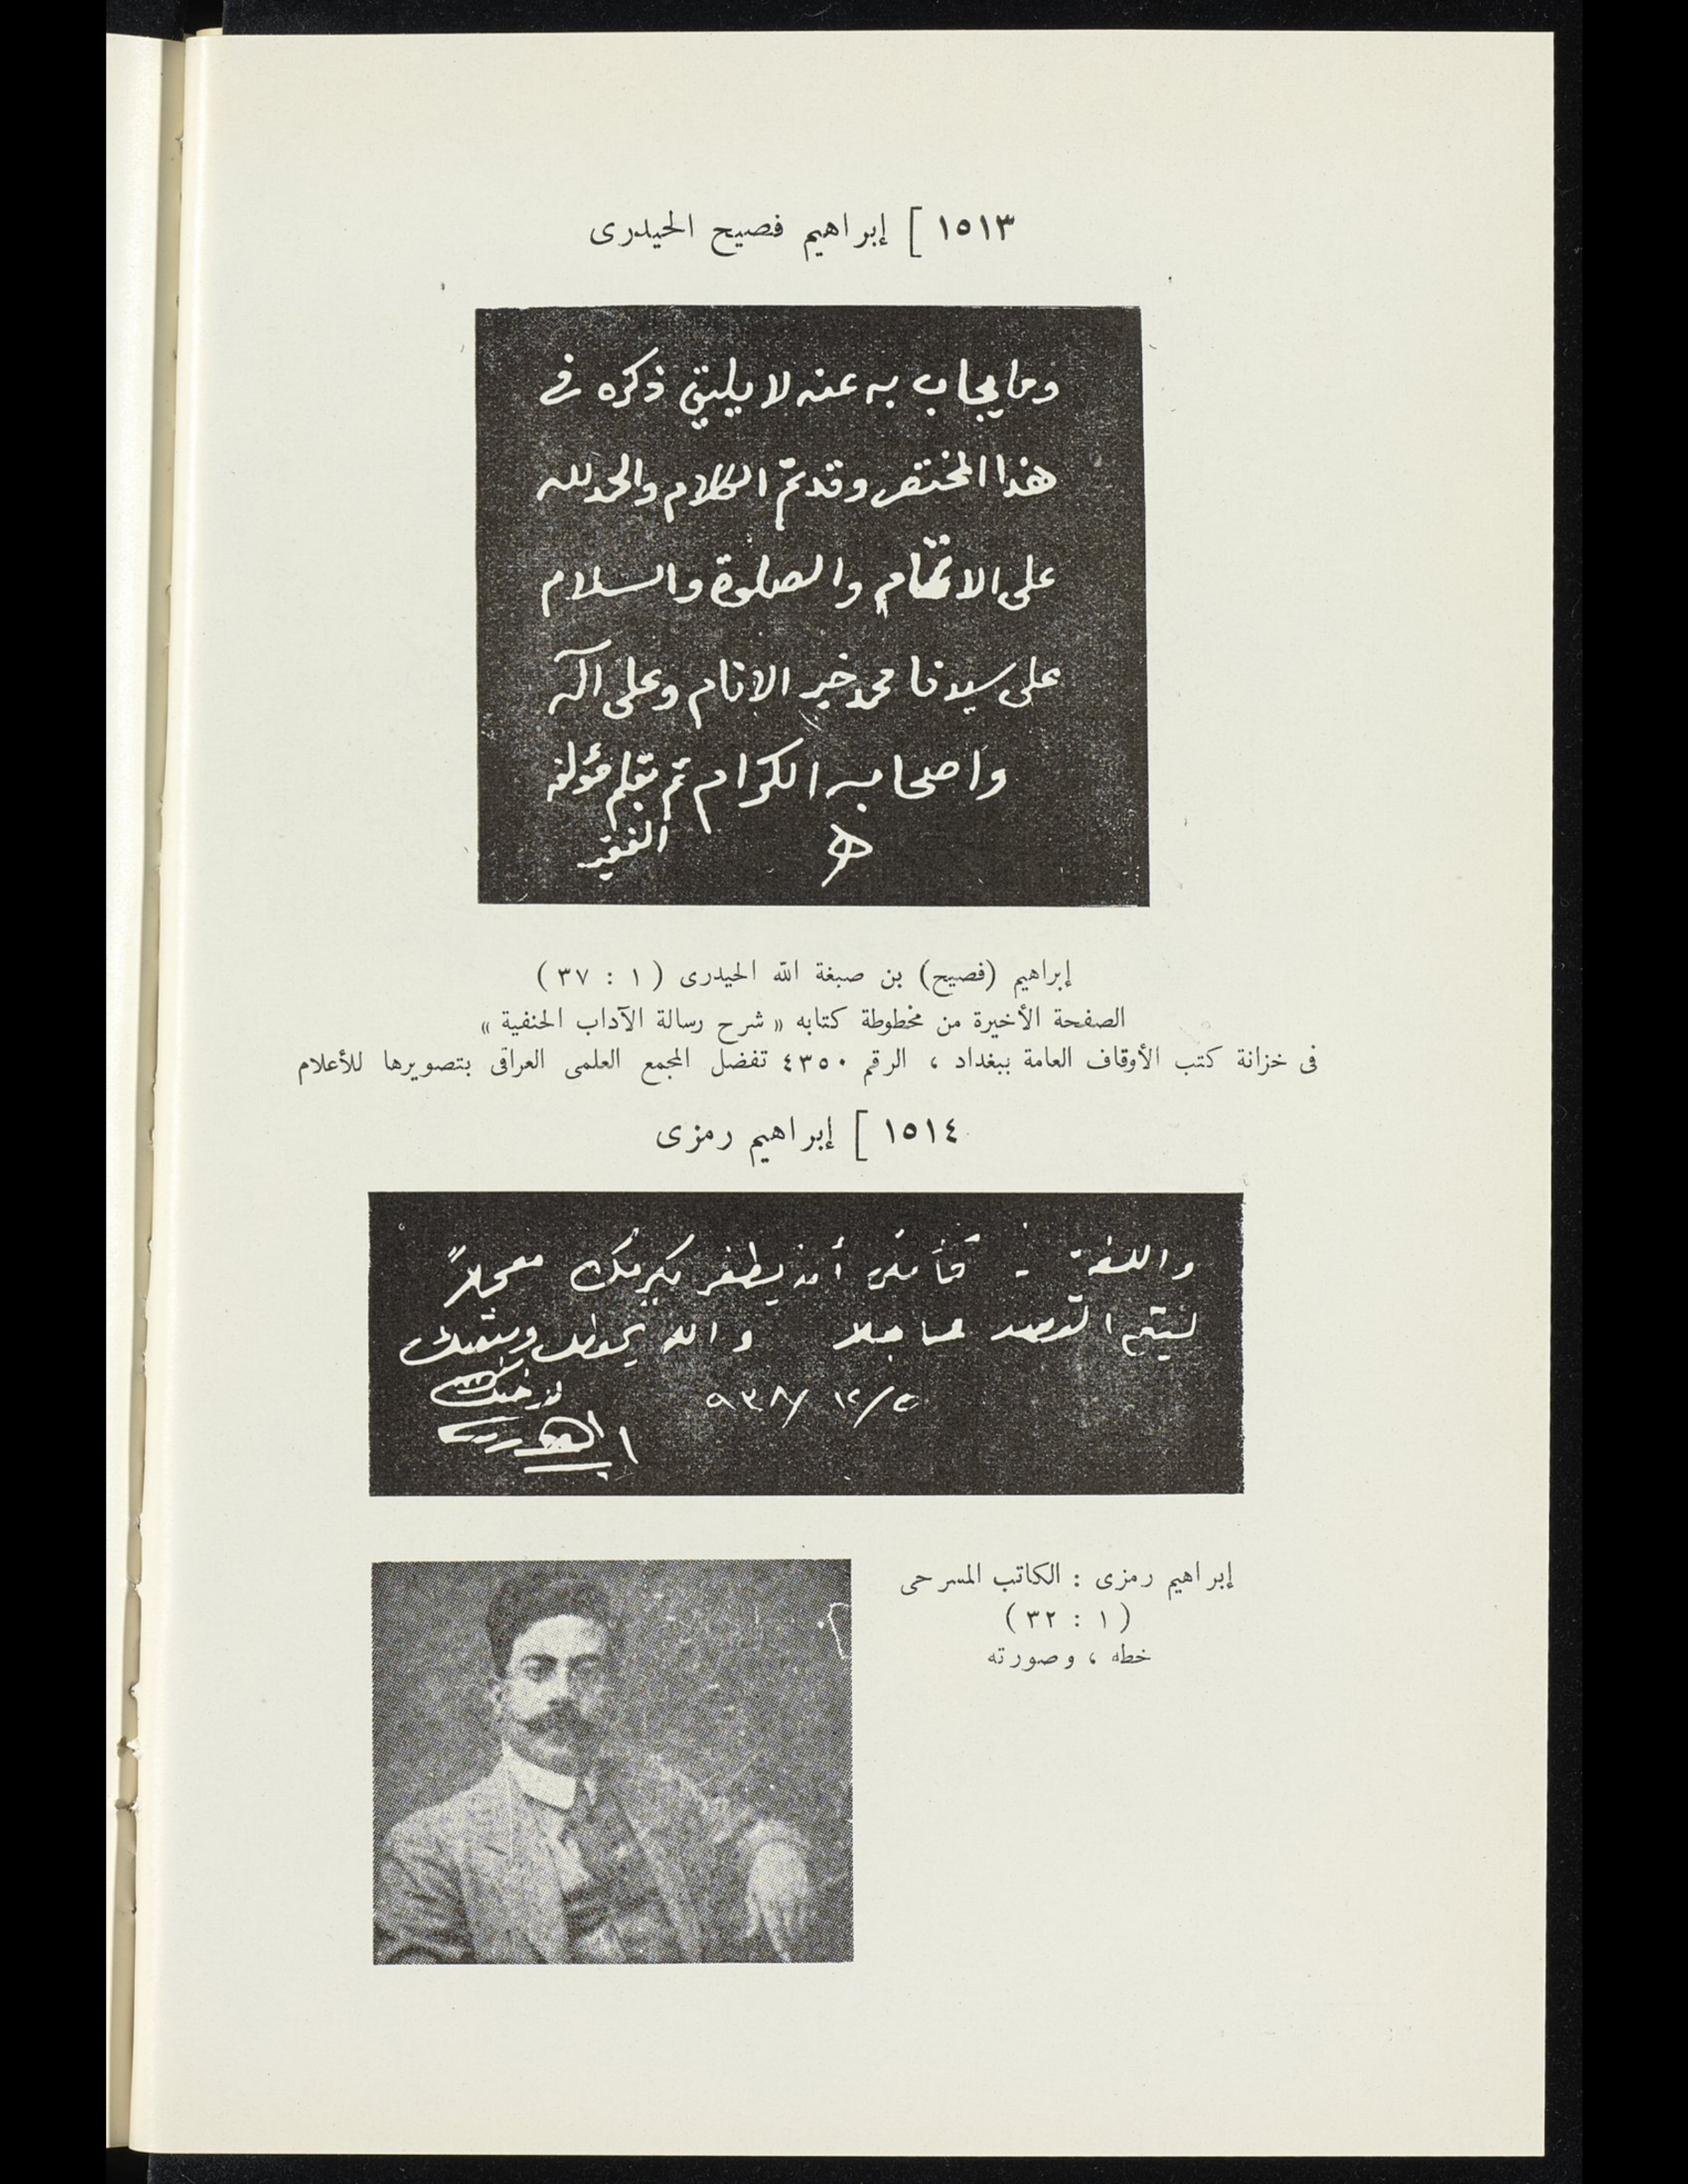 ١٥١٣ [ إبراهيم فصيح الحيدرى
وما يجاب به عنه لا يليق ذكره فى
هذا المختصر وقد تم الكلام والحمد لله
على الاتمام والصلوة والسلام
على سيدنا محمد خير الانام وعلى آله
واصحابه الكرام تم بقلم مؤلفه
الفقير
إبراهيم (فصيح) بن صبغة الله الحيدرى ( ١ : ٣٧ )
الصفحة الأخيرة من مخطوطة كتابه « شرح رسالة الآداب الحنفية »
فى خزانة كتب الأوقاف العامة ببغداد ، الرقم ٤٣٥٠ تفضل المجمع العلمى العراقى بتصويرها للأعلام
١٥١٤ [ إبراهيم رمزى
واللغة - أن يظفر معجلاً
والله يحفظك ويبقيك
٥/١٢/٩٣٨
إبراهيم رمزى : الكاتب المسرحى
( ١ : ٣٢ )
خطه ، وصورته